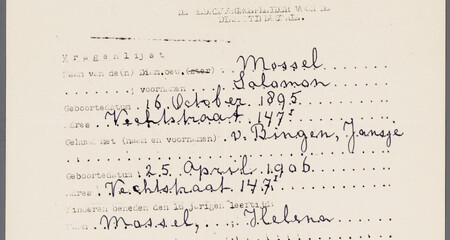 Vragenlijst
Naam van de(n) Dien.bew.(ster) Mossel
; voornamen Salomon
Geboortedatum 16 October 1895
Adres Vechtstraat 147 I
Gehuwd met (naam en voornamen) v. Bingen, Jansje
Geboortedatum 25 April 1906
Adres Vechtstraat 147 I
Kinderen beneden den 16 jarigen leeftijd:
Naam Mossel, Helena